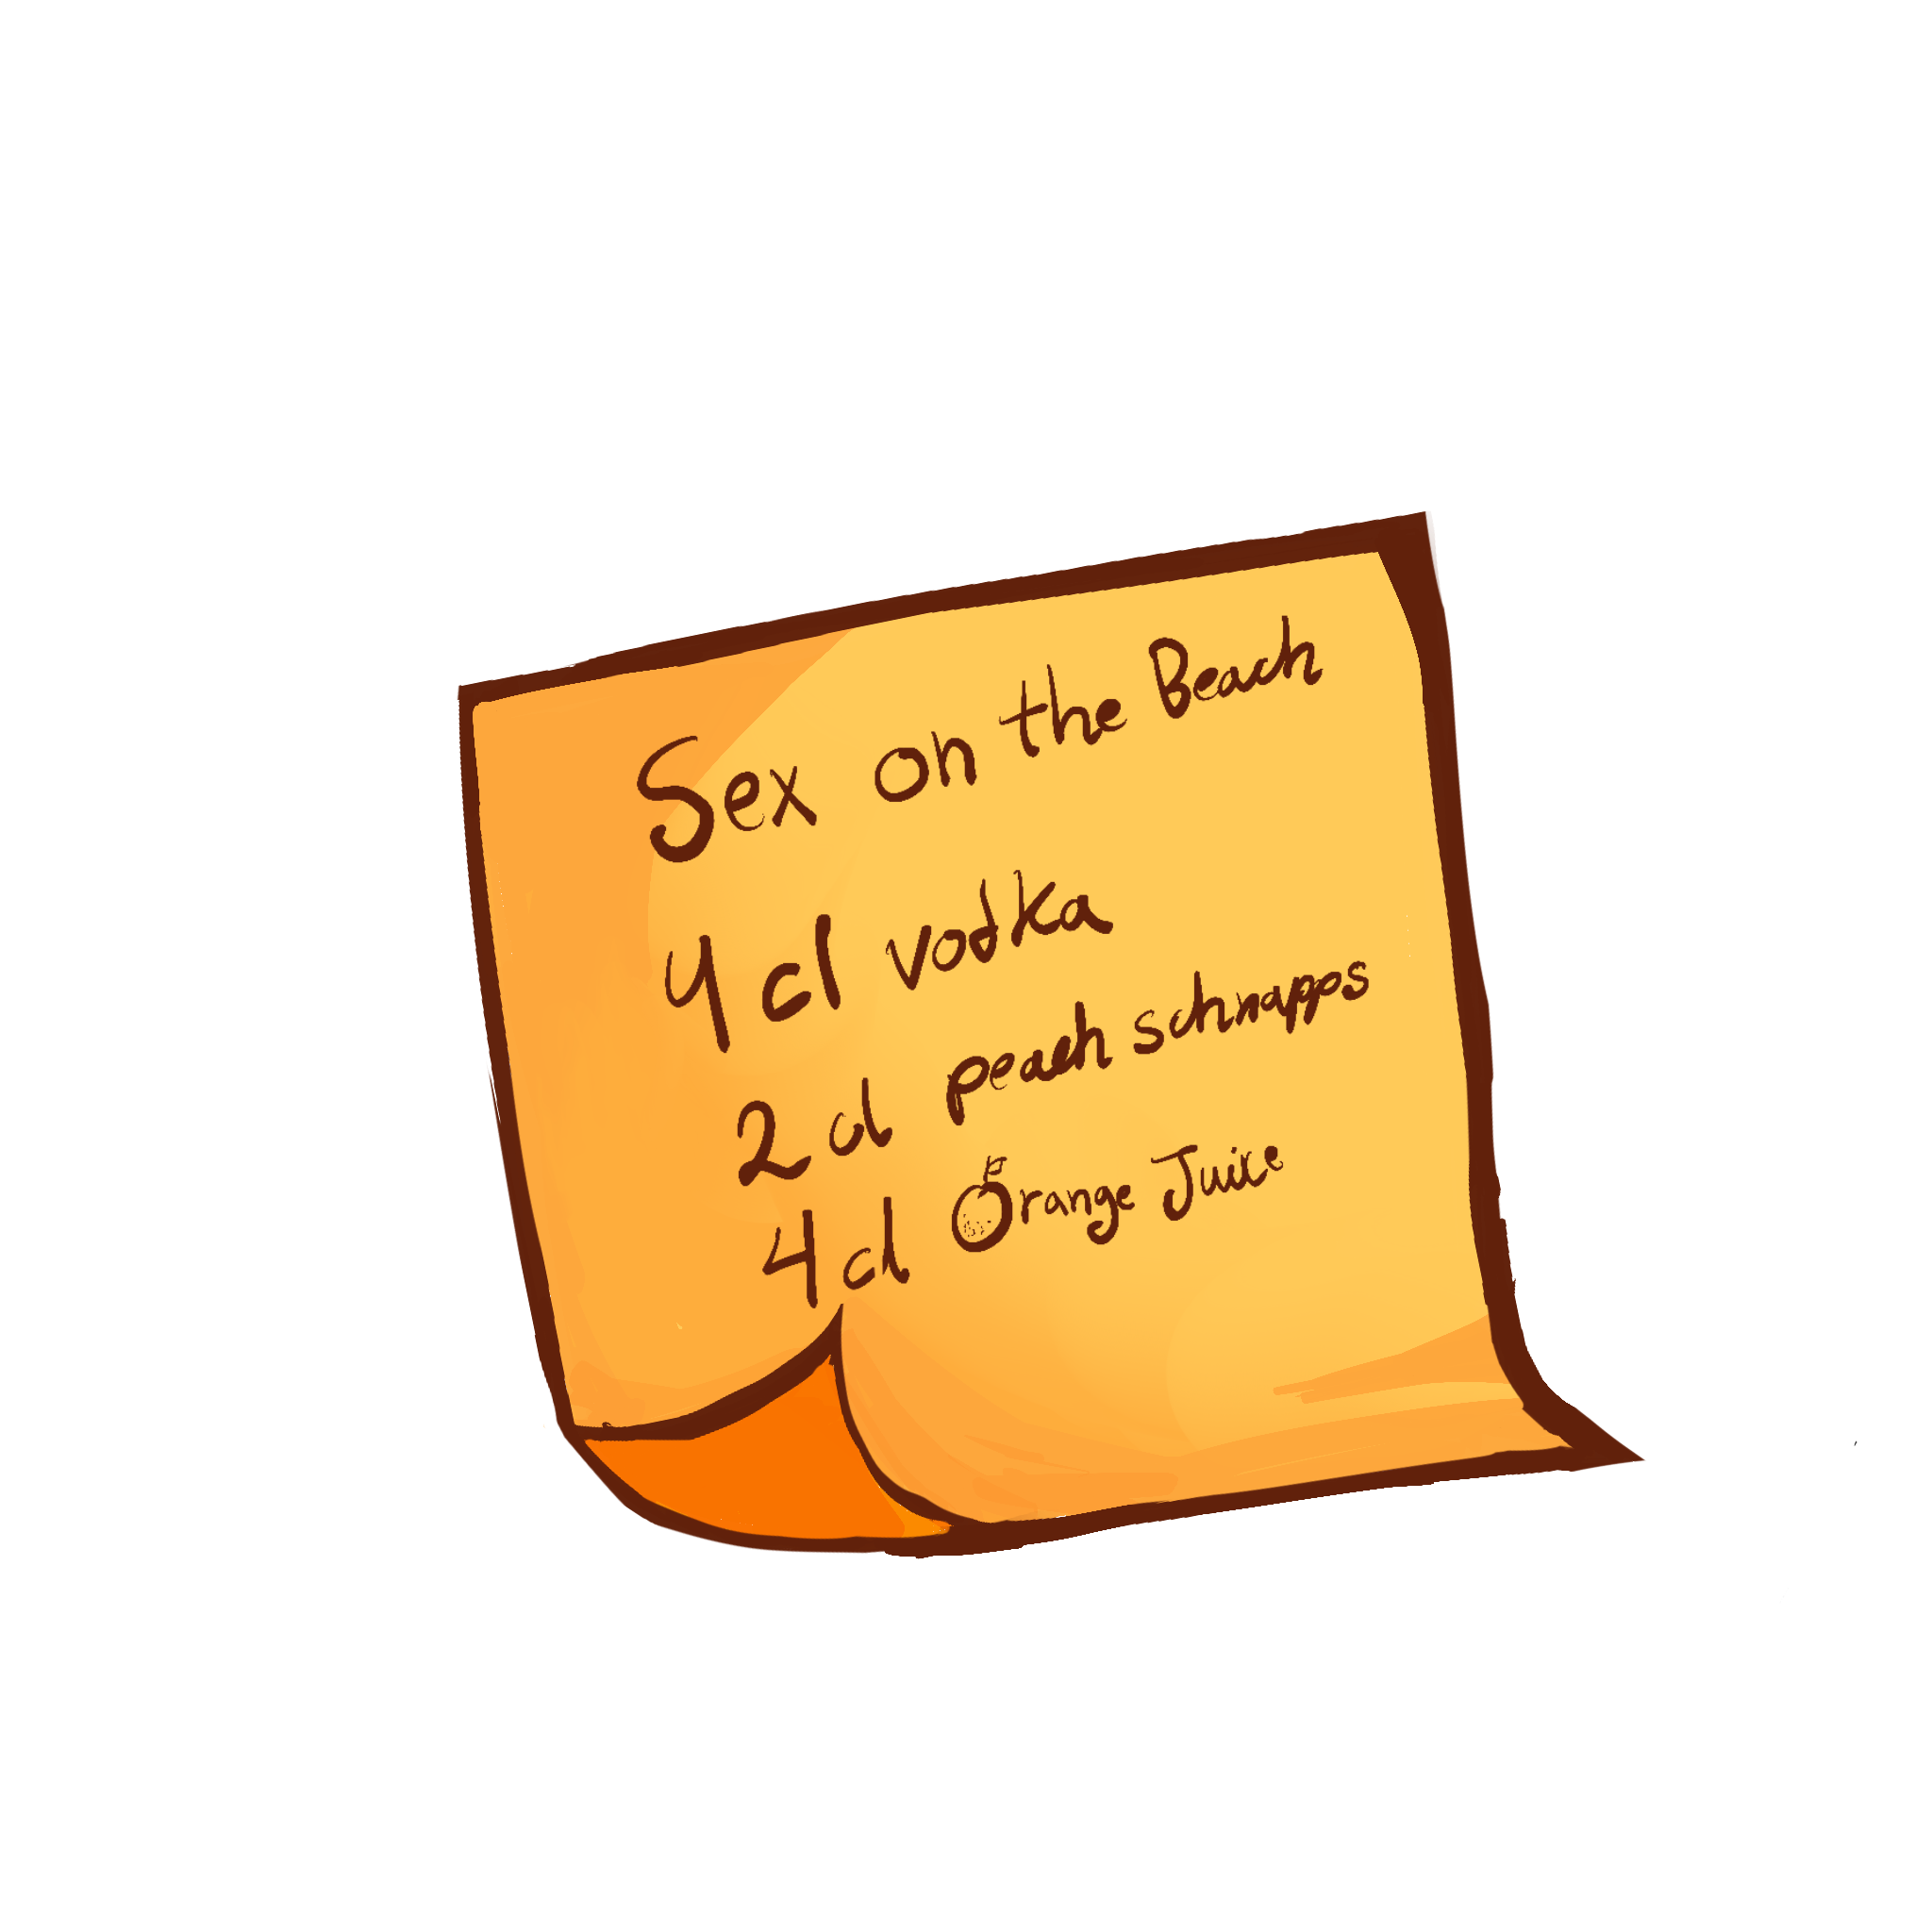 Sex on the Beach
4 cl vodka
2 cl peach schnapps
4 cl Orange Juice